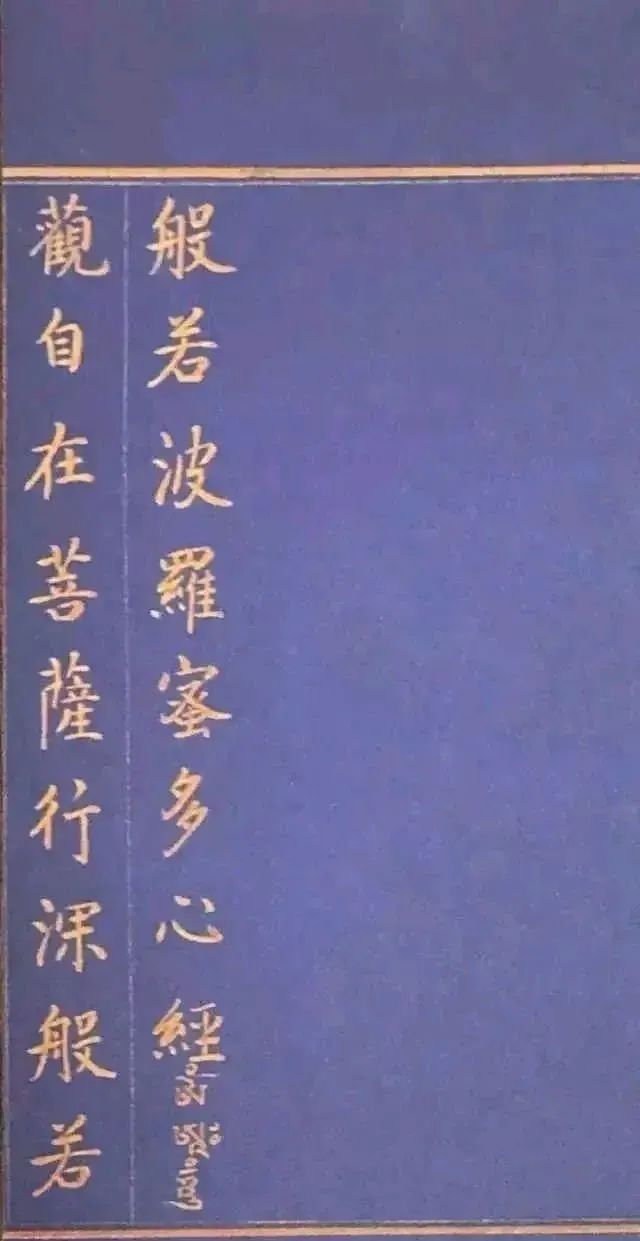 般若波羅蜜多心經
觀自在菩薩行深般若